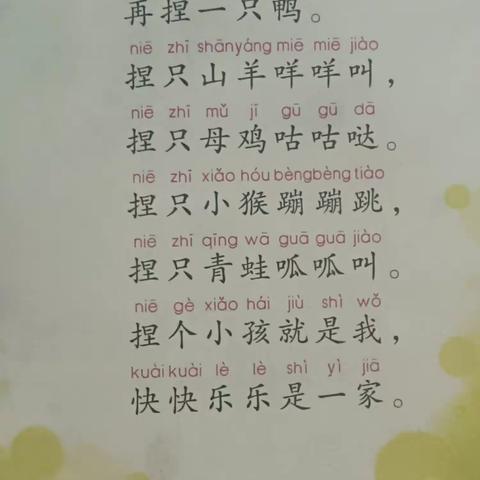 再捏一只鸭。
niē zhī shānyáng miē miē jiào
捏只山羊咩咩叫，
niē zhī mǔ jī gū gū dā
捏只母鸡咕咕哒。
niē zhī xiǎo hóu bèngbèng tiào
捏只小猴蹦蹦跳，
niē zhī qīng wā guā guā jiào
捏只青蛙呱呱叫。
niē gè xiǎo hái jiù shì wǒ
捏个小孩就是我，
kuài kuài lè lè shì yì jiā
快快乐乐是一家。